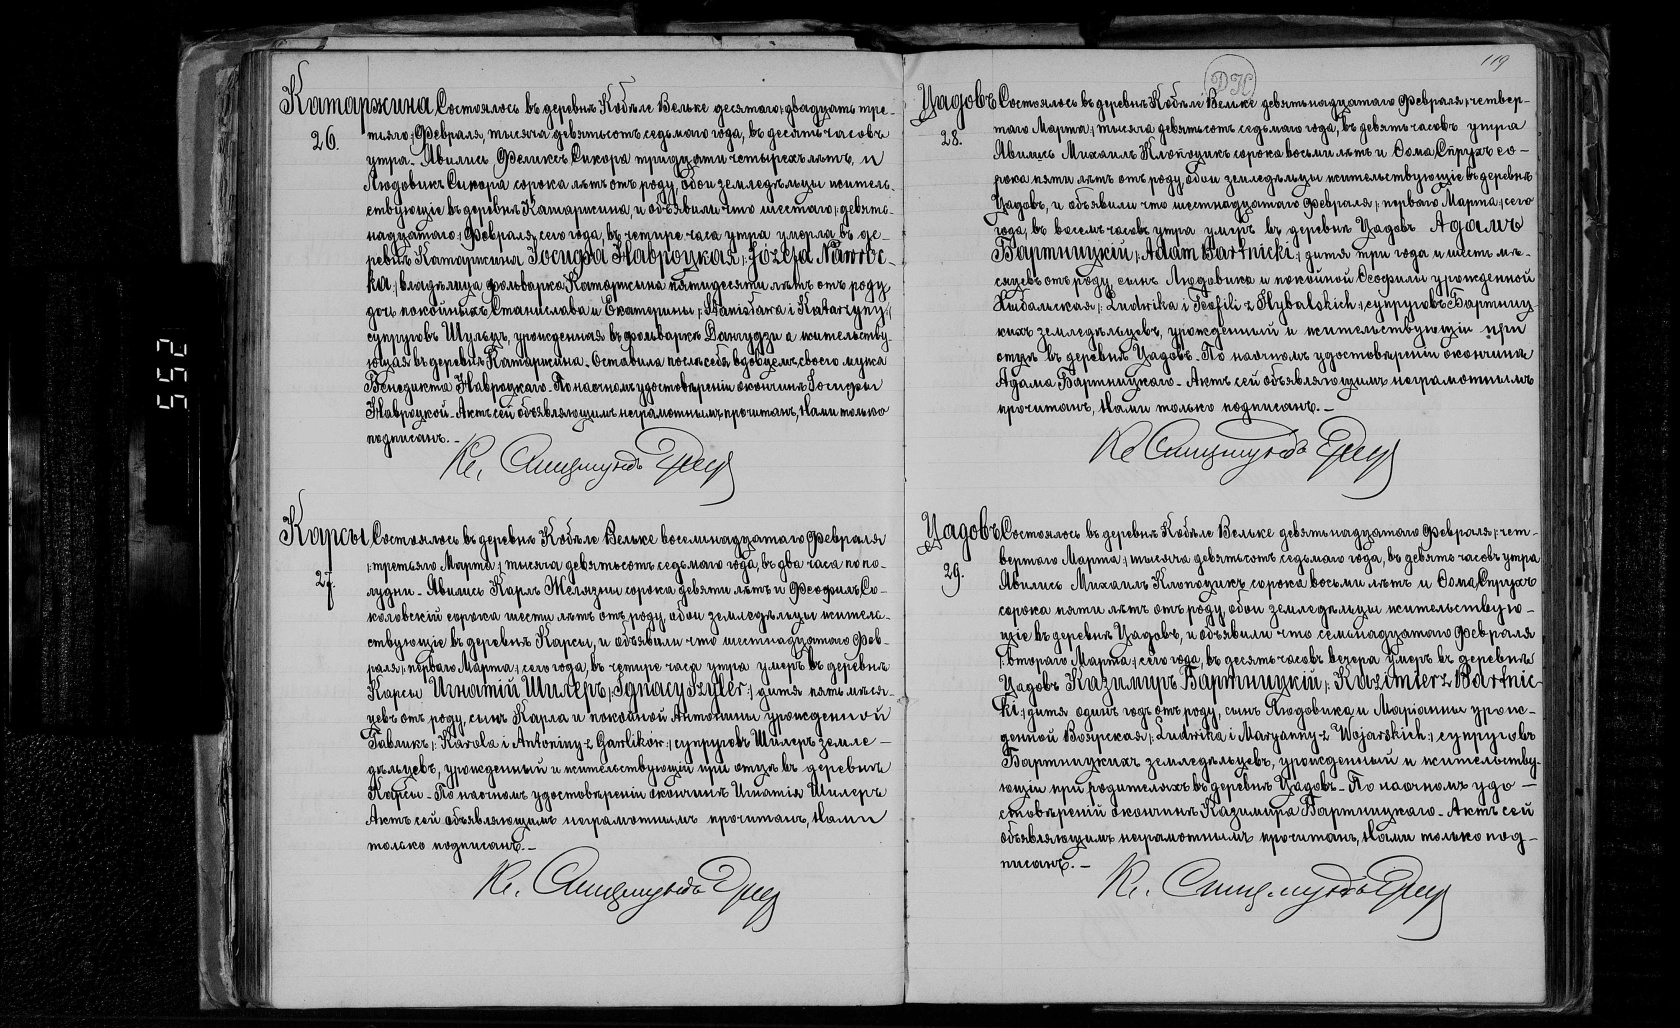 119
552
Катаржина
26.
Состоялось въ деревнѣ Кобѣле Вельке десятаго /:двадцать тре-
тьяго:/ Февраля, тысяча девятьсотъ седьмаго года, въ десять часовъ
утра. Явились Феликсъ Сикора тридцати четырехъ лѣтъ, и
Людовикъ Сикора сорока лѣтъ отъ роду, обои земледѣльцы житель-
ствующіе въ деревнѣ Катаржина, и объявили что шестаго /:девят-
надцатаго:/ Февраля, сего года, въ четыре часа утра умерла въ де-
ревнѣ Катаржина Іосифа Навроцкая /:Józefa Nawroc-
ka:/ владѣлица фольварка Катаржина пятидесяти лѣтъ отъ роду
дочь покойныхъ Станислава и Екатерины /:Stanisława i Katarzyny:/
супруговъ Шульцъ, урожденная въ фольваркѣ а жительству-
ющая въ деревнѣ Катаржина. Оставила послѣ себя вдовцемъ своего мужа
Венедикта Навроцкаго. По наочномъ удостовѣреніи окончинѣ Іосифы
Навроцкой. Актъ сей объявляющимъ неграмотнымъ прочитанъ, Нами только
подписанъ. –
Кс. Сигизмундъ
Карсы
27.
Состоялось въ деревнѣ Кобѣле Вельке восемнадцатаго Февраля
/:третьяго Марта:/ тысяча девятьсотъ седьмаго года, въ два часа по по-
лудни. Явились Карлъ Желязны сорока девяти лѣтъ и Феофилъ Со-
коловскій сорока шести лѣтъ отъ роду, обои земледѣльцы житель-
ствующіе въ деревнѣ Карсы, и объявили что шестнадцатаго Фев-
раля /:перваго Марта:/ сего года, въ четыре часа утра умеръ въ деревнѣ
Карсы Игнатій Шилеръ /:Ignacy Szyler:/ дитя пять мѣся-
цевъ отъ роду, сынъ Карла и покойной Антонины урожденной
Гавликъ /:Karola i Antoniny z Gawlików:/ супруговъ Шилеръ земле-
дѣльцевъ, урожденный и жительствующій при отцѣ въ деревнѣ
Карсы. По наочномъ удостовѣреніи окончинѣ Игнатія Шилеръ
Актъ сей объявляющимъ неграмотнымъ прочитанъ, Нами
только подписанъ. –
Кс. Сигизмундъ
Цадовъ
28.
Состоялось въ деревнѣ Кобѣле Вельке девятьнадцатаго Февраля /:четвер-
таго Марта:/ тысяча девятьсотъ седьмаго года, въ девять часовъ утра
Явились Михаилъ Клопоцикъ сорока восьми лѣтъ и Ѳома Спрухъ со-
рока пяти лѣтъ отъ роду, обои земледѣльцы жительствующіе въ деревнѣ
Цадовъ, и объявили что шестнадцатаго Февраля /:перваго Марта:/ сего
года, въ восемь часовъ утра умеръ въ деревнѣ Цадовъ Адамъ
Бартницкій /:Adam Bartnicki:/ дитя три года и шесть мѣ-
сяцевъ отъ роду, сынъ Людовика и покойной Ѳеофили урожденной
Хыбальская /:Ludwika i Teofili z Hybalskich:/ супруговъ Бартниц-
кихъ земледѣльцевъ, урожденный и жительствующій при
отцѣ въ деревнѣ Цадовъ. По наочномъ удостовѣреніи окончинѣ
Адама Бартницкаго. Актъ сей объявляющимъ неграмотнымъ
прочитанъ, Нами только подписанъ. –
Кс Сигизмундъ
Цадовъ
29.
Состоялось въ деревнѣ Кобѣле Вельке девятьнадцатаго Февраля /:чет-
вертаго Марта:/ тысяча девятьсотъ седьмаго года, въ девять часовъ утра
Явились Михаилъ Клопоцикъ сорока восьми лѣтъ и Ѳома Спрухъ
сорока пяти лѣтъ отъ роду, обои земледѣльцы жительствую-
щіе въ деревнѣ Цадовъ, и объявили что семьнадцатаго Февраля
/:втораго Марта:/ сего года, въ десять часовъ вечера умеръ въ деревнѣ
Цадовъ Казимиръ Бартницкій /:Kazimierz Bartnic-
ki:/ дитя одинъ годъ отъ роду, сынъ Людовика и Маріанны урож-
денной Воярская /:Ludwika i Maryanny z Wojarskich:/ супруговъ
Бартницкихъ земледѣльцевъ, урожденный и жительству-
ющій при родителяхъ въ деревнѣ Цадовъ. По наочномъ удо-
стовѣреній окончинѣ Казимира Бартницкаго. Актъ сей
объявляющимъ неграмотнымъ прочитанъ, Нами только под-
писанъ. –
Кс. Сигизмундъ